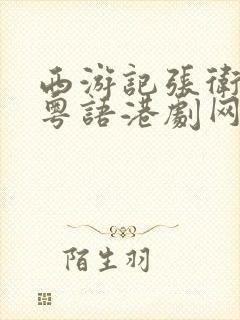 西游記張衛
粵語港劇网
陌生羽